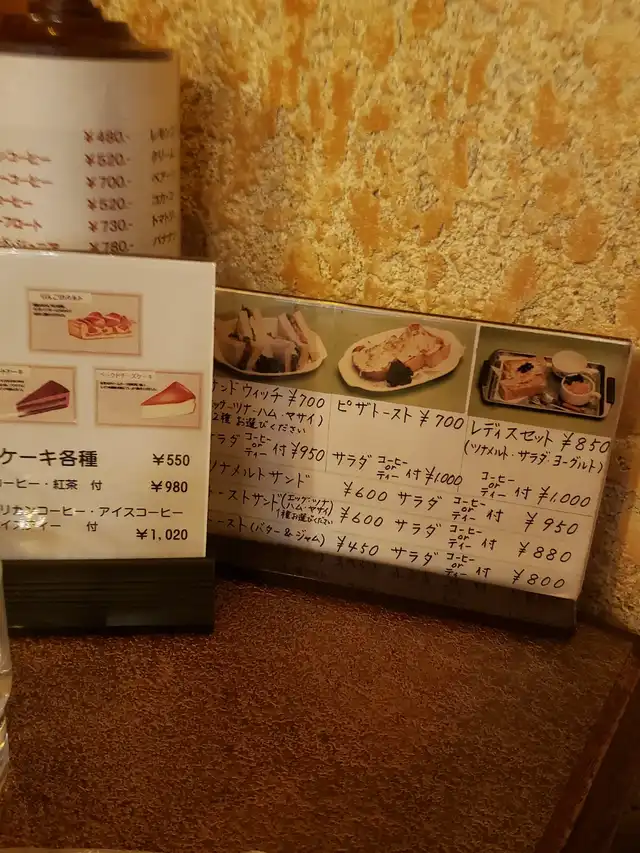 ¥480.-
コーヒー ¥520.-
コーヒー ¥700.-
¥520.-
フロート ¥730.-
¥780.-
レモン
クリーム
ココア
トマト
バナナ
ベークドチーズケーキ
ケーキ各種 ¥550
コーヒー・紅茶 付 ¥980
リカンコーヒー・アイスコーヒー
イスティー 付 ¥1,020
ンドウィッチ ¥700
ッグ・ツナ・ハム・ヤサイ)
2種 お選びください
ラダ コーヒー or ティー 付 ¥950
ピザトースト ¥700
サラダ コーヒー or ティー 付 ¥1,000
レディスセット ¥850
(ツナメルト・サラダ・ヨーグルト)
コーヒー or ティー 付 ¥1,000
ツナメルトサンド ¥600 サラダ コーヒー or ティー 付 ¥950
ーストサンド(エッグ・ツナ ハム・ヤサイ) 1種お選びください ¥600 サラダ コーヒー or ティー 付 ¥880
ースト(バター&ジャム) ¥450 サラダ コーヒー or ティー 付 ¥800